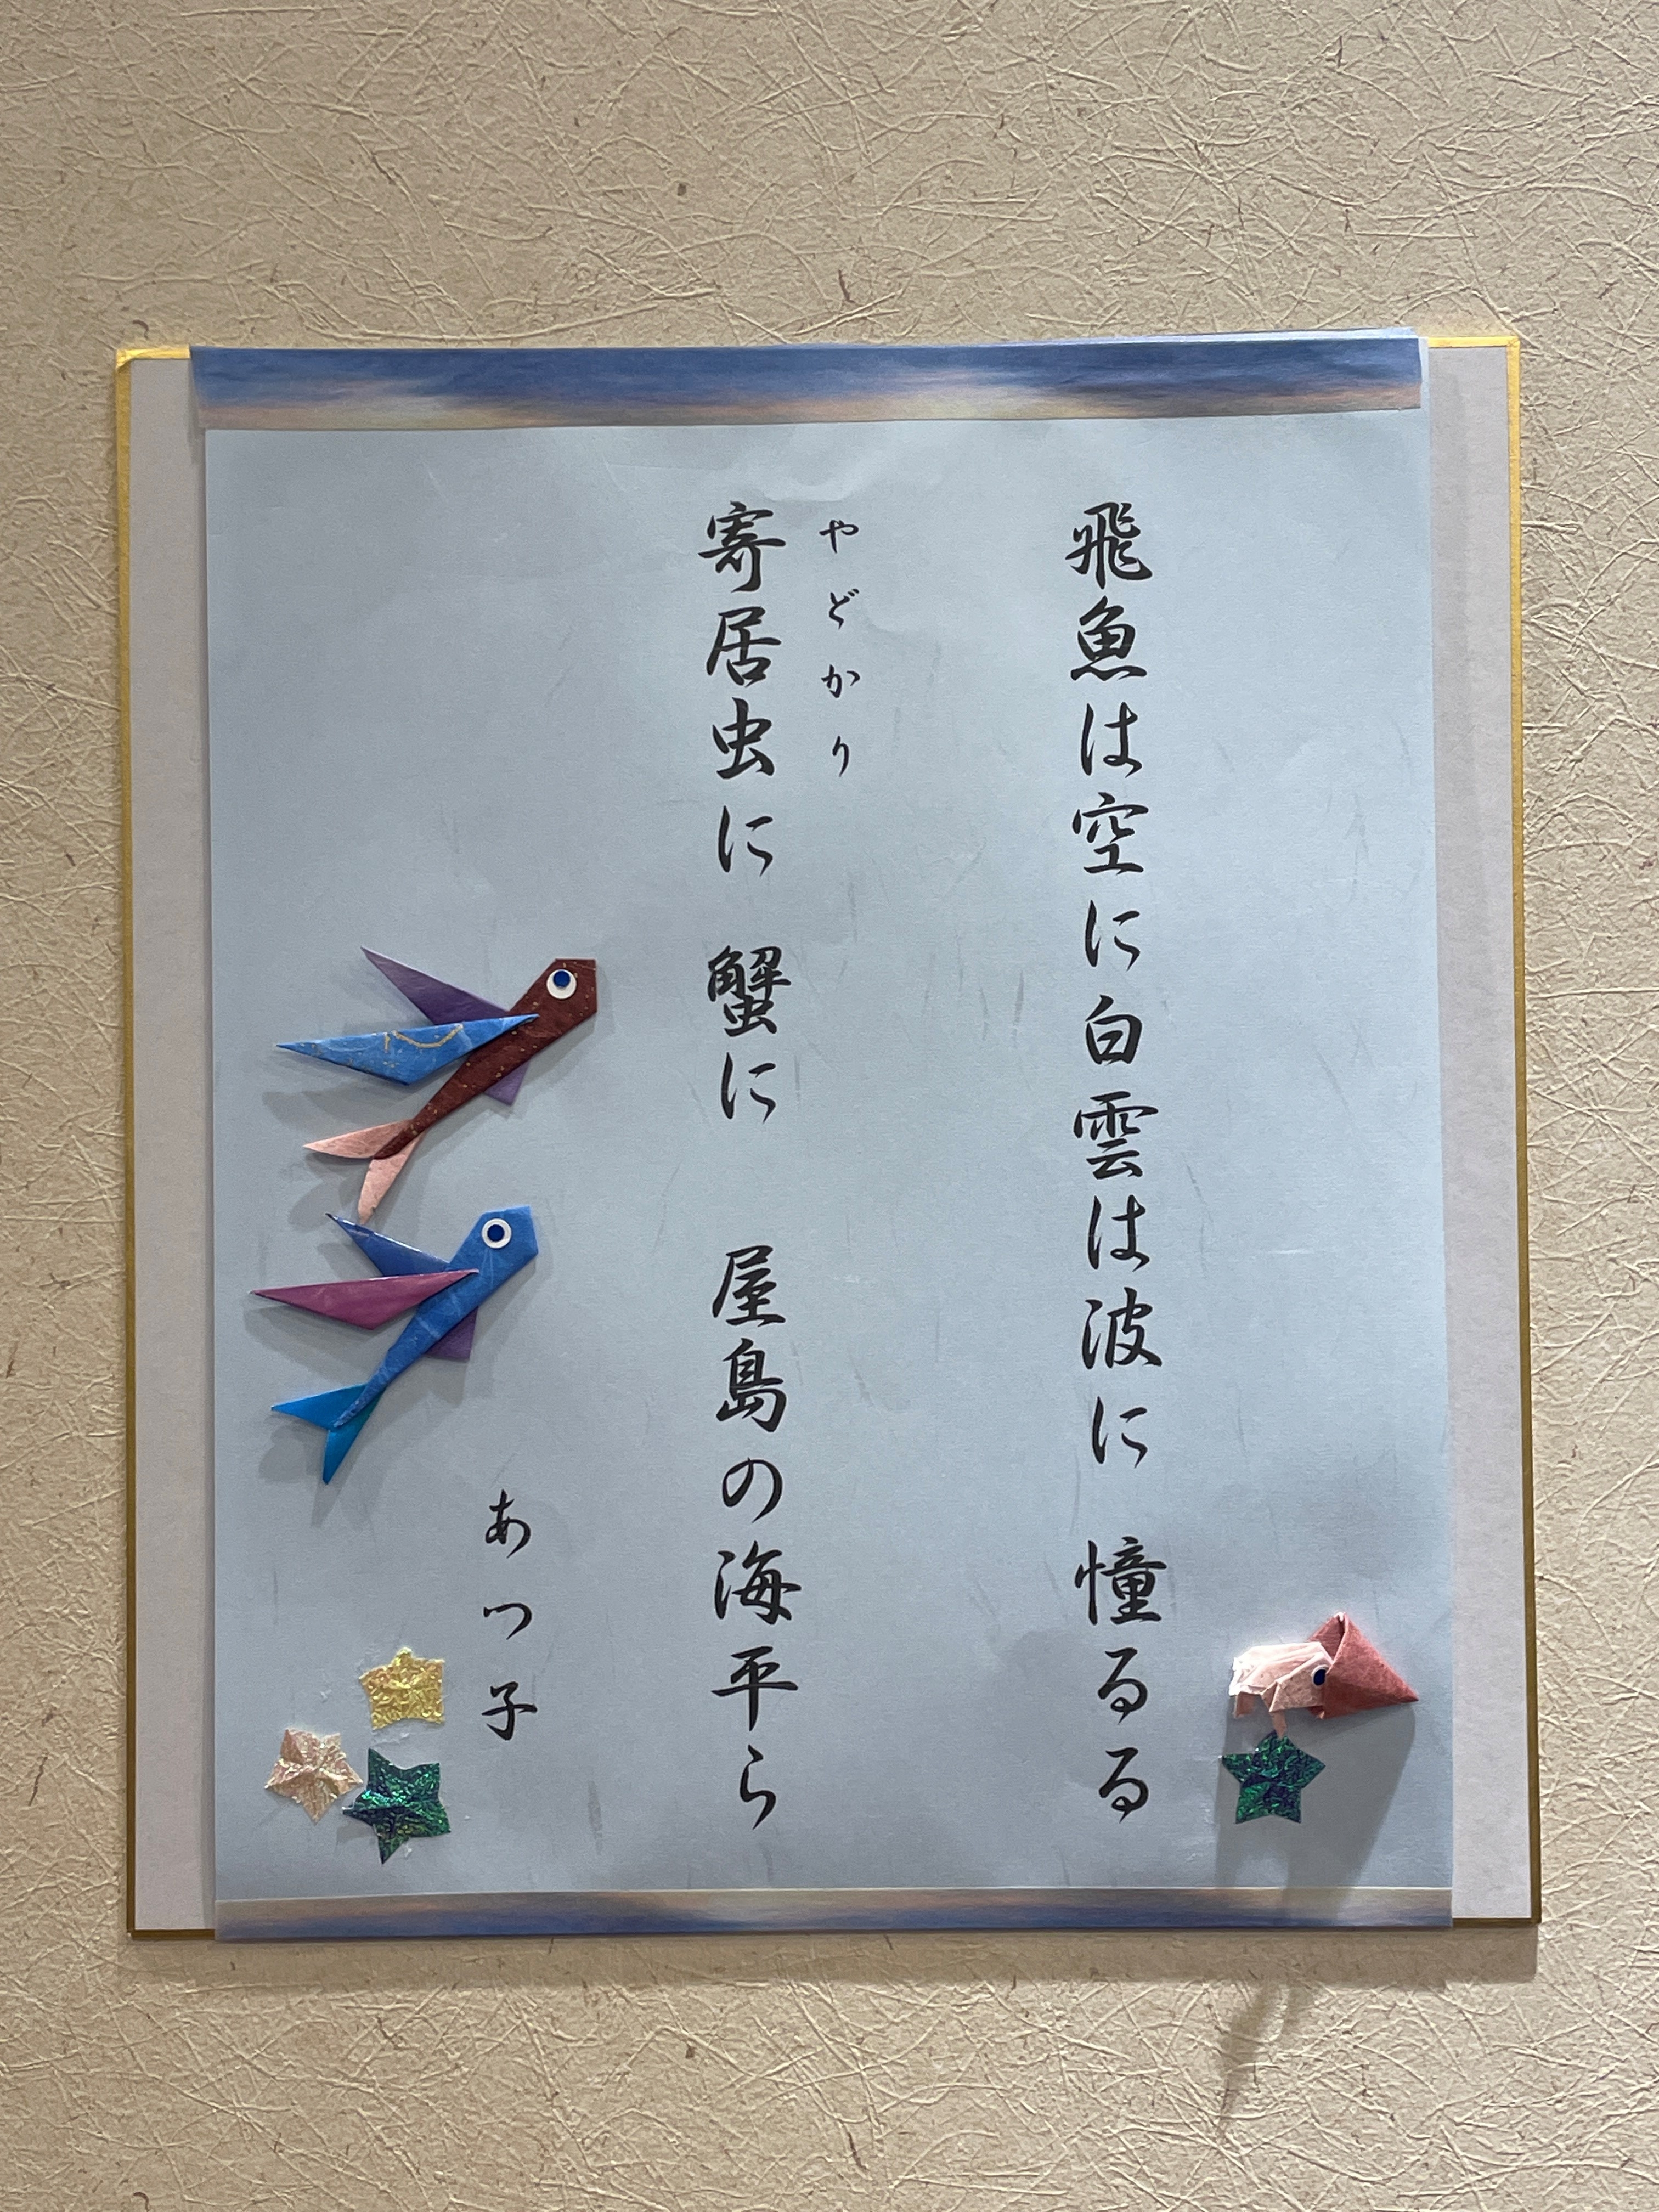 飛魚は空に白雲は波に 憧るる
やどかり
寄居虫に 蟹に 屋島の海平ら
あつ子